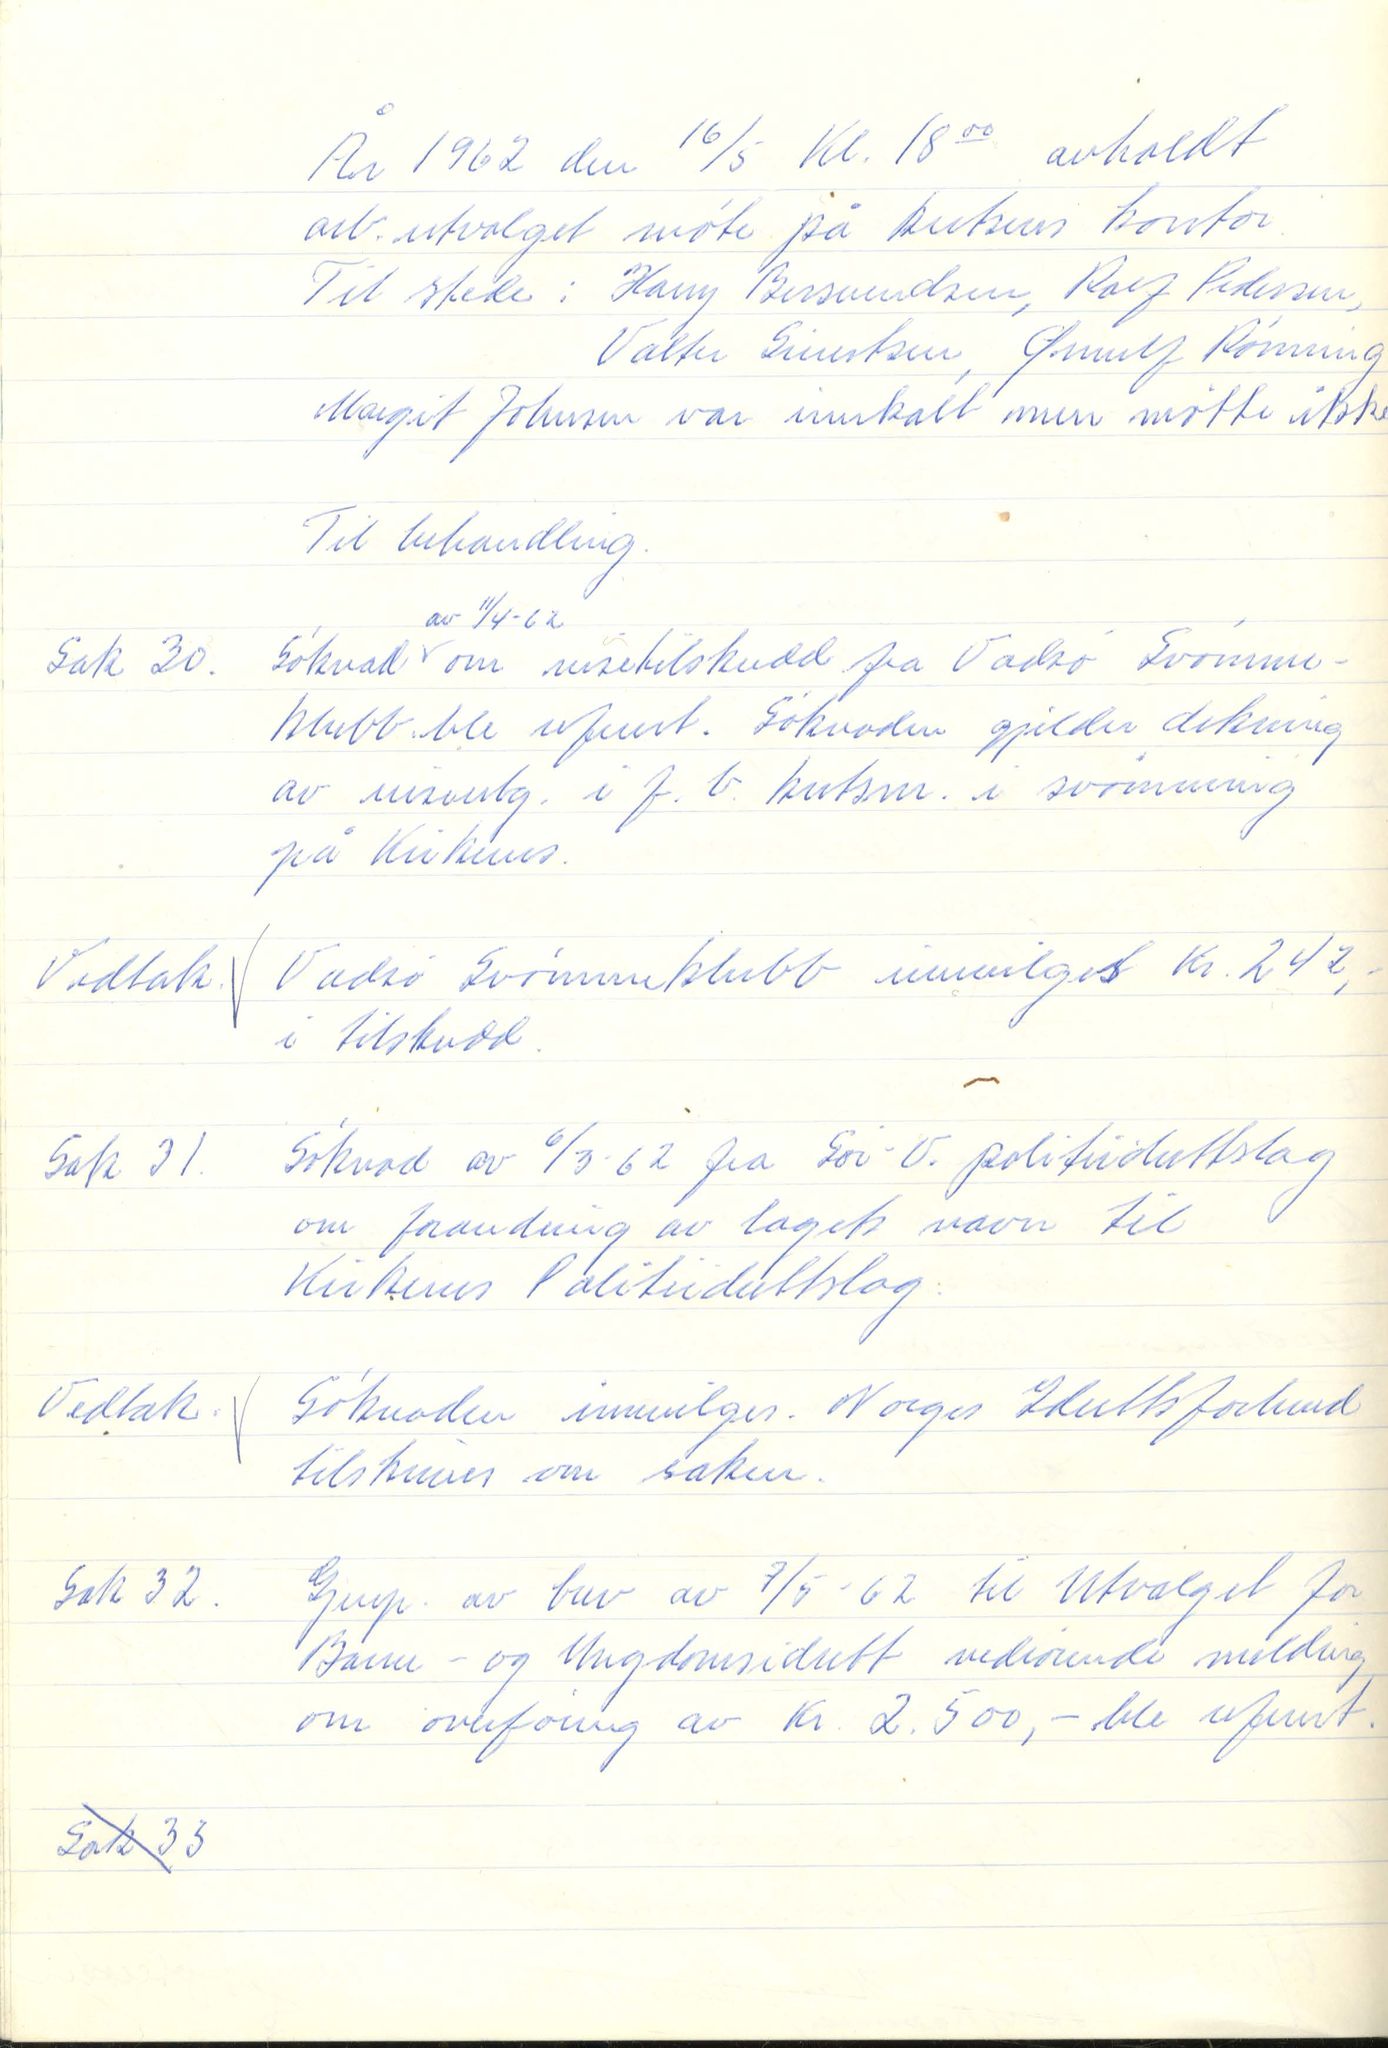 År 1962 den 16/5 Kl. 18 00 avholdt
arb. utvalget møte på kretsens kontor.
Til stede: Harry Bersvendsen, Rolf Pedersen,
Valter Einertsen, Ørnulf Rønning
Margit Johnsen var innkalt men møtte ikke
Til behandling.
av 11/4-62
Sak 30. Søknad om reisetilskudd fra Vadsø Svømme-
klubb ble referert. Søknaden gjelder dekning
av reiseutg. i f. b. kretsm. i svømming
på Kirkenes.
Vedtak. Vadsø Svømmeklubb innvilges Kr. 242,-
i tilskudd.
Sak 31. Søknad av 6/3-62 fra Sør-V. politiidrettslag
om forandring av lagets navn til
Kirkenes Politiidrettslag.
Vedtak. Søknaden innvilges. Norges Idrettsforbund
tilskrives om saken.
Sak 32. Gjenp. av brev av 7/5-62 til Utvalget for
Barne- og Ungdomsidrett vedrørende melding
om overføring av Kr. 2.500,- ble referert.
Sak 33